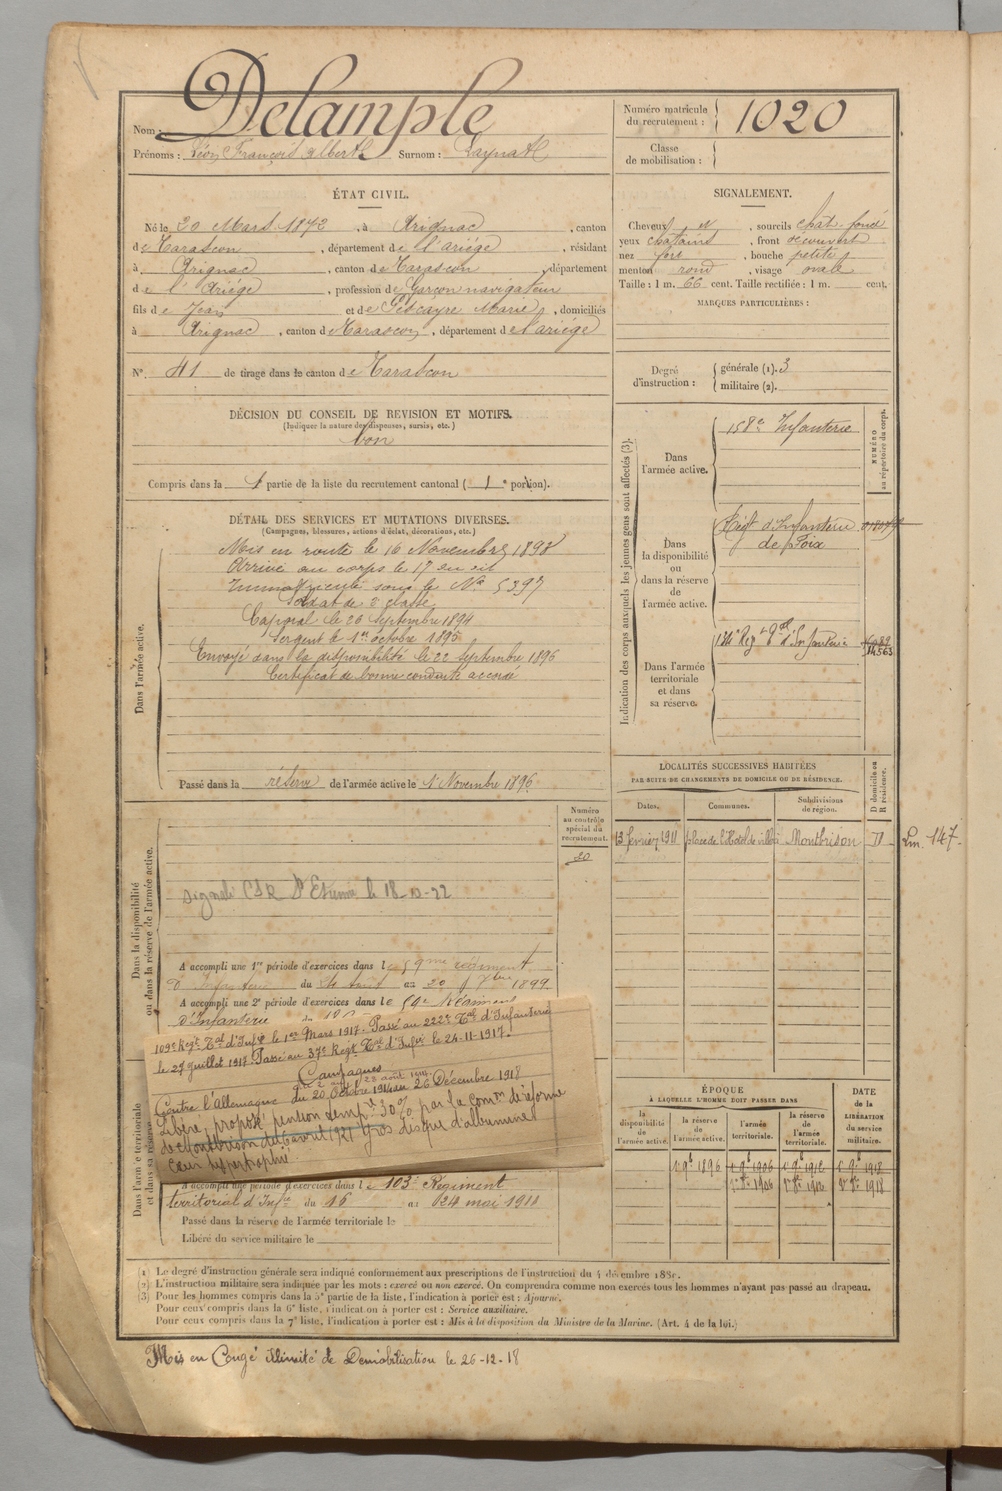 Nom : Delample
Prénoms : Léon François Albert Surnom :
ÉTAT CIVIL.
Né le 20 Mars 1872, à Arignac, canton
de Tarascon, département de l'ariége, résidant
à Arignac, canton de Tarascon, département
de l'Ariége, profession de Garçon navigateur
fils de Jean et de Marie, domiciliés
à Arignac, canton de Tarascon, département de l'ariége
N° 41 de tirage dans le canton de Tarascon
DÉCISION DU CONSEIL DE REVISION ET MOTIFS.
(Indiquer la nature des dispenses, sursis, etc.)
bon
Compris dans la 1 partie de la liste du recrutement cantonal (1e portion).
DÉTAIL DES SERVICES ET MUTATIONS DIVERSES.
(Campagnes, blessures, actions d'éclat, décorations, etc.)
Dans l'armée active.
Mis en route le 16 Novembre 1893
Arrivé au corps le 17 du dit
Immatriculé sous le No 5397
Soldat de 2e classe
Caporal le 26 septembre 1894
Sergent le 1er octobre 1895
Envoyé dans la disponibilité le 22 septembre 1896
Certificat de bonne conduite accordé
Passé dans la réserve de l'armée active le 1 Novembre 1896
Numéro
au contrôle
spécial du
recrutement.
20
Dans la disponibilité
ou dans la réserve de l'armée active.
Signalé St Etienne le 18-10-22
A accompli une 1re période d'exercices dans le 59me régiment
d'Infanterie du 24 Août au 20 7bre 1899
A accompli une 2e période d'exercices dans le 59e Régiment
d'Infanterie du
109e Regt Tal d'Infie le 1er Mars 1917. Passé au 222e Tal d'Infanterie
le 27 juillet 1917. Passé au 37e Regt Tal d'Infie le 24-11-1917.
Campagnes
Contre l'Allemagne du 20 Octobre 1914 au 26 Décembre 1918
Libéré, proposé pension temp. 30% par la comon de réforme
de Montbrison du 6 avril 1921 gros disque d'albumine
cœur hypertrophié
Dans l'armée territoriale
et dans sa réserve
A accompli une période d'exercices dans le 103e Régiment
territorial d'Infie du 16 au 24 mai 1911
Passé dans la réserve de l'armée territoriale le
Libéré du service militaire le
Numéro matricule
du recrutement : 1020
Classe
de mobilisation :
SIGNALEMENT.
Cheveux et, sourcils chât. foncé
yeux chatains, front découvert
nez fort, bouche petite
menton rond, visage ovale
Taille : 1 m. 66 cent. Taille rectifiée : 1 m. cent.
MARQUES PARTICULIÈRES :
Degré
d'instruction :
générale (1). 3
militaire (2).
Indication des corps auxquels les jeunes gens sont affectés (3).
NUMÉRO
au répertoire du corps.
Dans
l'armée active.
158e Infanterie
Dans
la disponibilité
ou
dans la réserve
de
l'armée active.
Régt d'Infanterie
de Foix
Dans l'armée
territoriale
et dans
sa réserve.
14563
LOCALITÉS SUCCESSIVES HABITÉES
PAR SUITE DE CHANGEMENTS DE DOMICILE OU DE RÉSIDENCE.
Dates. Communes. Subdivisions
de région.
D domicile ou
R résidence.
13 février 1911 place de l'Hotel de ville Montbrison D Lm. 147.
ÉPOQUE
À LAQUELLE L'HOMME DOIT PASSER DANS
la
disponibilité
de
l'armée active.
la réserve
de
l'armée active.
l'armée
territoriale.
la réserve
de
l'armée
territoriale.
DATE
de la
LIBÉRATION
du service
militaire.
1 9b 1896 1 9b 1906 1 9b 1912 1 9b 1918
(1) Le degré d'instruction générale sera indiqué conformément aux prescriptions de l'instruction du 4 décembre 1889.
(2) L'instruction militaire sera indiquée par les mots : exercé ou non exercé. On comprendra comme non exercés tous les hommes n'ayant pas passé au drapeau.
(3) Pour les hommes compris dans la 5e partie de la liste, l'indication à porter est : Ajourné.
Pour ceux compris dans la 6e liste, l'indication à porter est : Service auxiliaire.
Pour ceux compris dans la 7e liste, l'indication à porter est : Mis à la disposition du Ministre de la Marine. (Art. 4 de la loi.)
Mis en Congé illimité de Démobilisation le 26-12-18